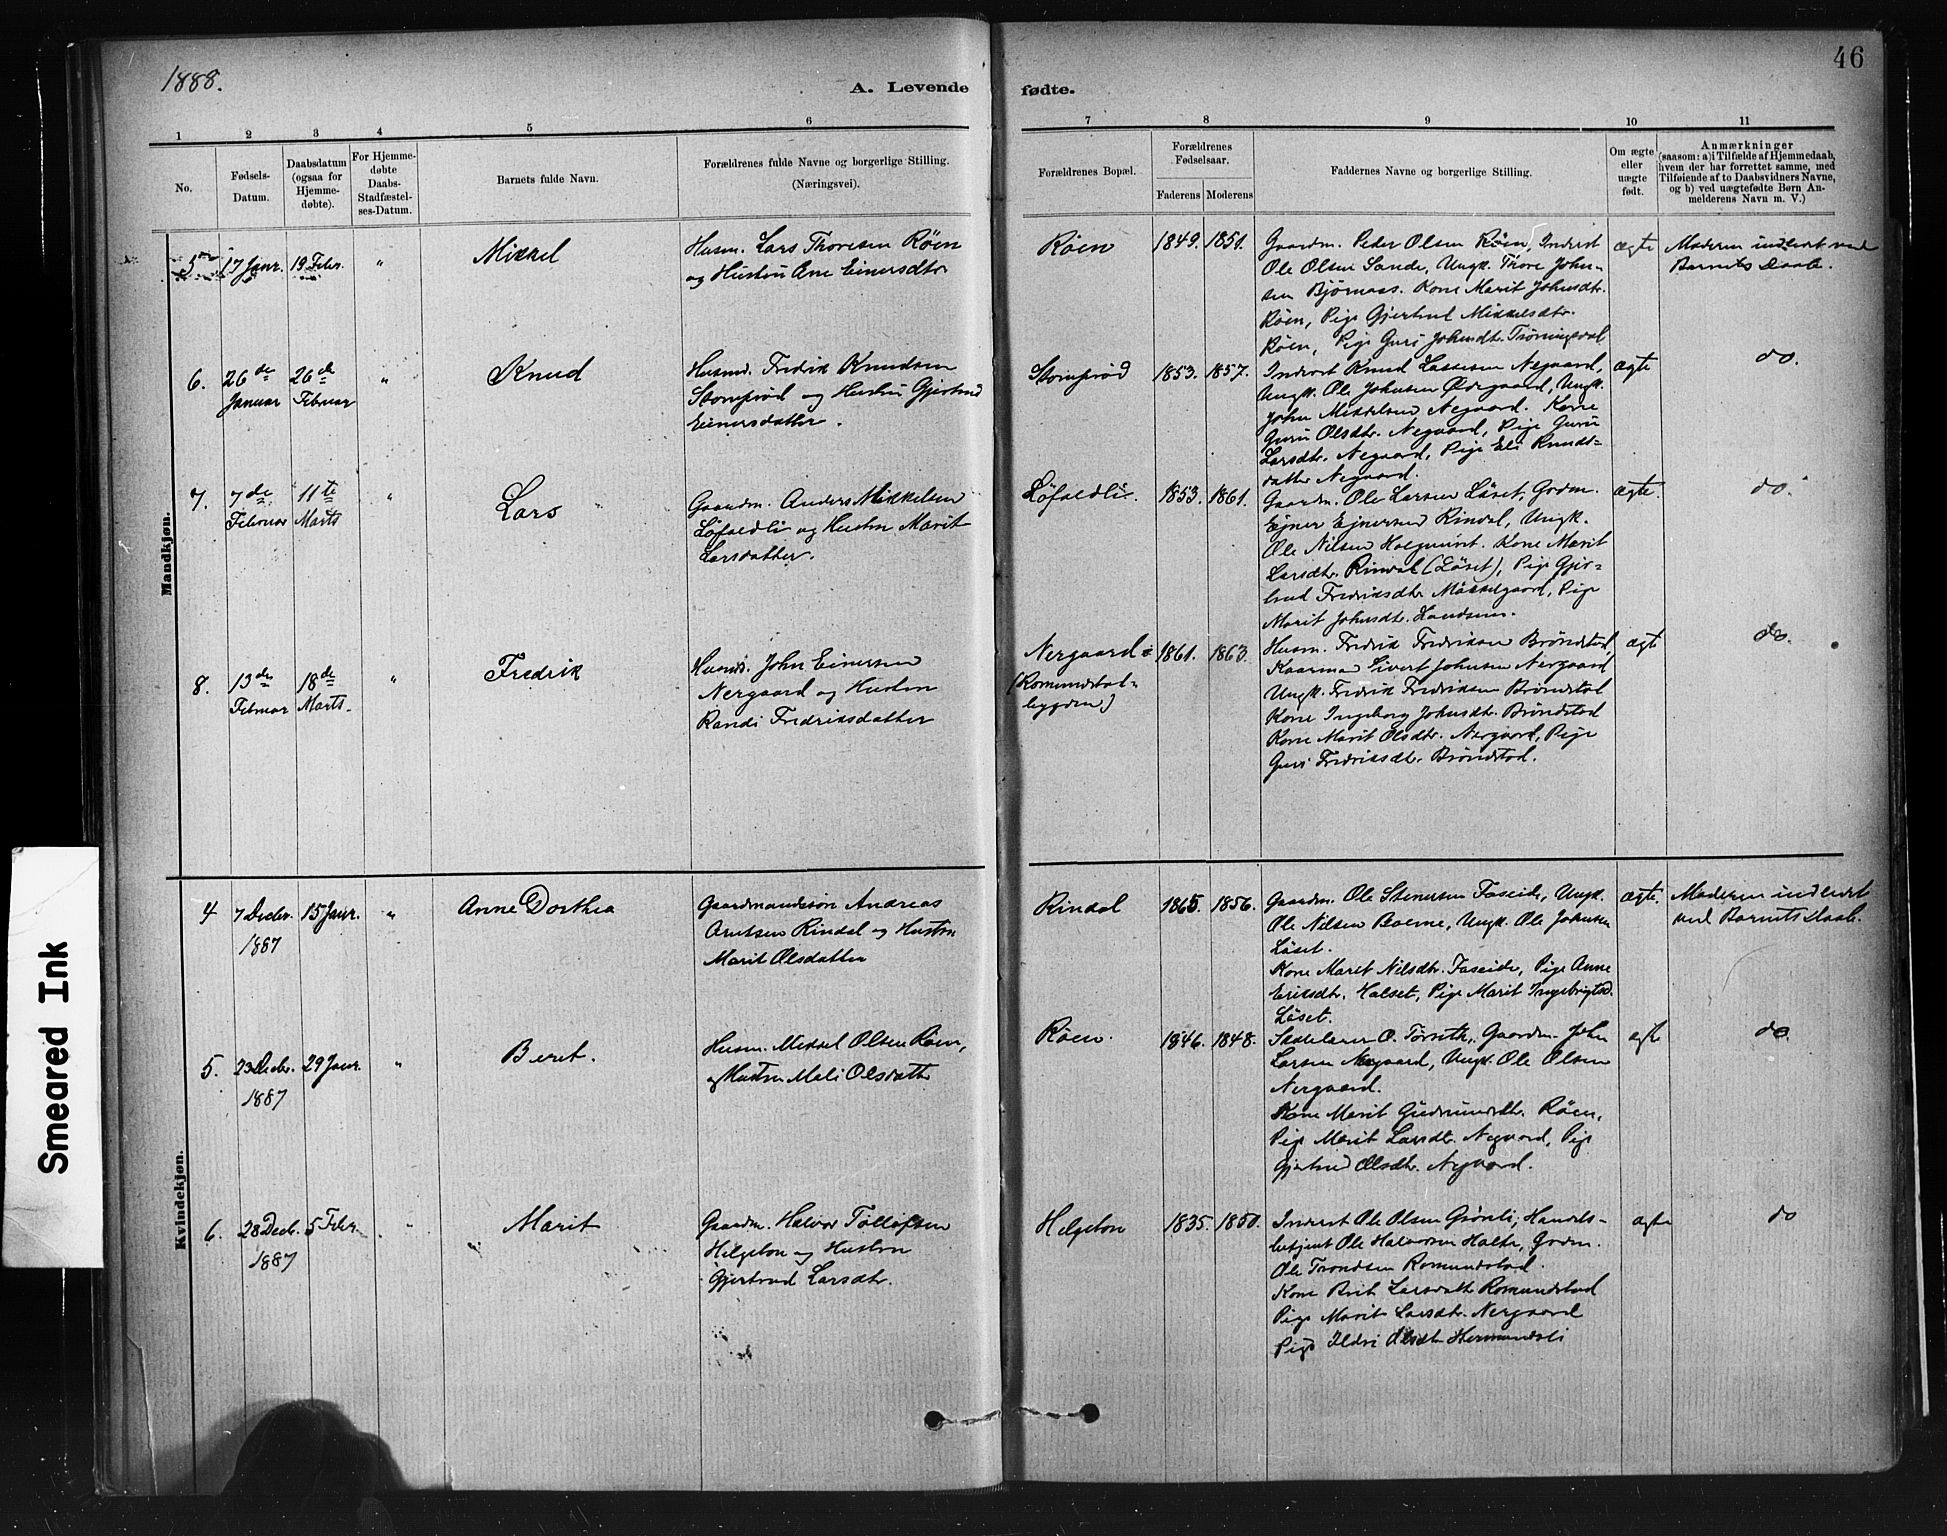 1888.
46
A. Levende
fødte.
1 2 3 4 5 6 7 8 9 10 11
No.
Fødsels-
Datum.
Daabsdatum
(ogsaa for
Hjemme-
døbte).
For Hjemme-
døbte
Daabs-
Stadfæstel-
ses-Datum.
Barnets fulde Navn.
Forældrenes fulde Navne og borgerlige Stilling.
(Næringsvei).
Forældrenes Bopæl.
Forældrenes
Fødselsaar.
Faderens
Moderens
Faddernes Navne og borgerlige Stilling.
Om ægte
eller
uægte
født.
Anmærkninger
(saasom: a) i Tilfælde af Hjemmedaab,
hvem der har forrettet samme, med
Tilføiende af to Daabsvidners Navne,
og b) ved uægtefødte Børn An-
melderens Navn m. V.)
Mandkjøn.
5
17 Janr.
19 Febr.
"
Mikkel
Husm. Lars Thoresen Røen
og Hustru Ane Einersdtr
Røen
1849.
1851.
Gaardm. Peder Olsen Røen, Inderst
Ole Olsen Sande, Ungk. Thore John-
sen Bjørnaas. Kone Marit Johnsdtr.
Røen, Pige Gjertrud Mikkelsdtr.
Røen, Pige Guri Johnsdtr.
ægte
Moderen indledt ved
Barnets Daab.
6.
26de
Januar
26de
Februar
"
Knud
Husmd. Fredrik Knudsen
Stomprød og Hustru Gjertrud
Einersdatter.
Stomprød
1853.
1857.
Inderst Knud Larssen Negaard,
Ungk. Ole Johnsen Ødegaard, Ungk.
John Mikkelsen Negaard. Kone
Guru Olsdtr. Negaard, Pige Guru
Larsdtr. Negaard, Pige Eli Knuds-
datter Negaard.
ægte
do.
7.
7de
Februar
11te
Marts
"
Lars
Gaardm. Anders Mikkelsen
Løfaldli og Hustru Marit
Larsdatter.
Løfaldli.
1853.
1861.
Gaardm. Ole Larsen Løset, Gdm.
Ejner Ejnersen Rindal, Ungk.
Ole Nilsen. Kone Marit
Larsdtr. Rindal (Løset), Pige Gjer-
trud Fredriksdtr. Mikkelgaard, Pige
Marit Johnsdtr.
ægte.
do.
8.
13de
Februar
18de
Marts.
"
Fredrik
Husmd. John Einersen
Nergaard og Hustru
Randi Fredriksdatter
Nergaard i
(Romundstad-
bygden)
1861.
1863.
Husm. Fredrik Fredriksen Brøndstad,
Kaarmand Sivert Johnsen Nergaard
Ungk. Fredrik Fredriksen Brøndstad
Kone Ingeborg Johnsdtr. Brøndstad
Kone Marit Olsdtr. Nergaard, Pige
Guri Fredriksdtr. Brøndstad.
ægte
do.
Kvindekjøn.
4
7 Decbr.
1887
15 Janr.
"
Anne Dorthea
Gaardmandssøn Andreas
Arntsen Rindal og Hustru
Marit Olsdatter
Rindal
1865.
1856.
Gaardm. Ole Stenersen Faseide, Ungk.
Ole Nilsen Boerne, Ungk. Ole Johnsen
Løset.
Kone Maret Nilsdtr. Faseide, Pige Anne
Eriksdtr. Halset, Pige Marit Ingebrigtsd.
Løset.
ægte.
Moderen indledt
ved Barnets Daab.
5.
23 Decbr.
1887
29 Janr.
"
Beret.
Husm. Mikkel Olsen Røen,
og Hustru Mali Olsdatter
Røen.
1846.
1848.
Skolelærer O. Tørseth, Gaardm. John
Larsen Negaard, Ungk. Ole Olsen
Nergaard.
Kone Marit Gudmundsdtr. Røen,
Pige Marit Larsdtr. Negaard, Pige
Gjertrud Olsdtr. Negaard.
ægte
do.
6.
28 Decb.
1887
5 Febr.
"
Marit
Gaardm. Halvor Tollefsen
Helgeton og Hustru
Gjertrud Larsdtr.
Helgeton
1835.
1850.
Inderst Ole Olsen Grønli, Handels-
betjent Ole Halvorsen Holte, Gdm.
Ole Trondsen Romundstad.
Kone Brit Larsdatter Romundstad
Pige Marit Larsdtr. Nergaard
Pige Ildri Olsdtr Hermundsli
ægte
do
Smeared Ink